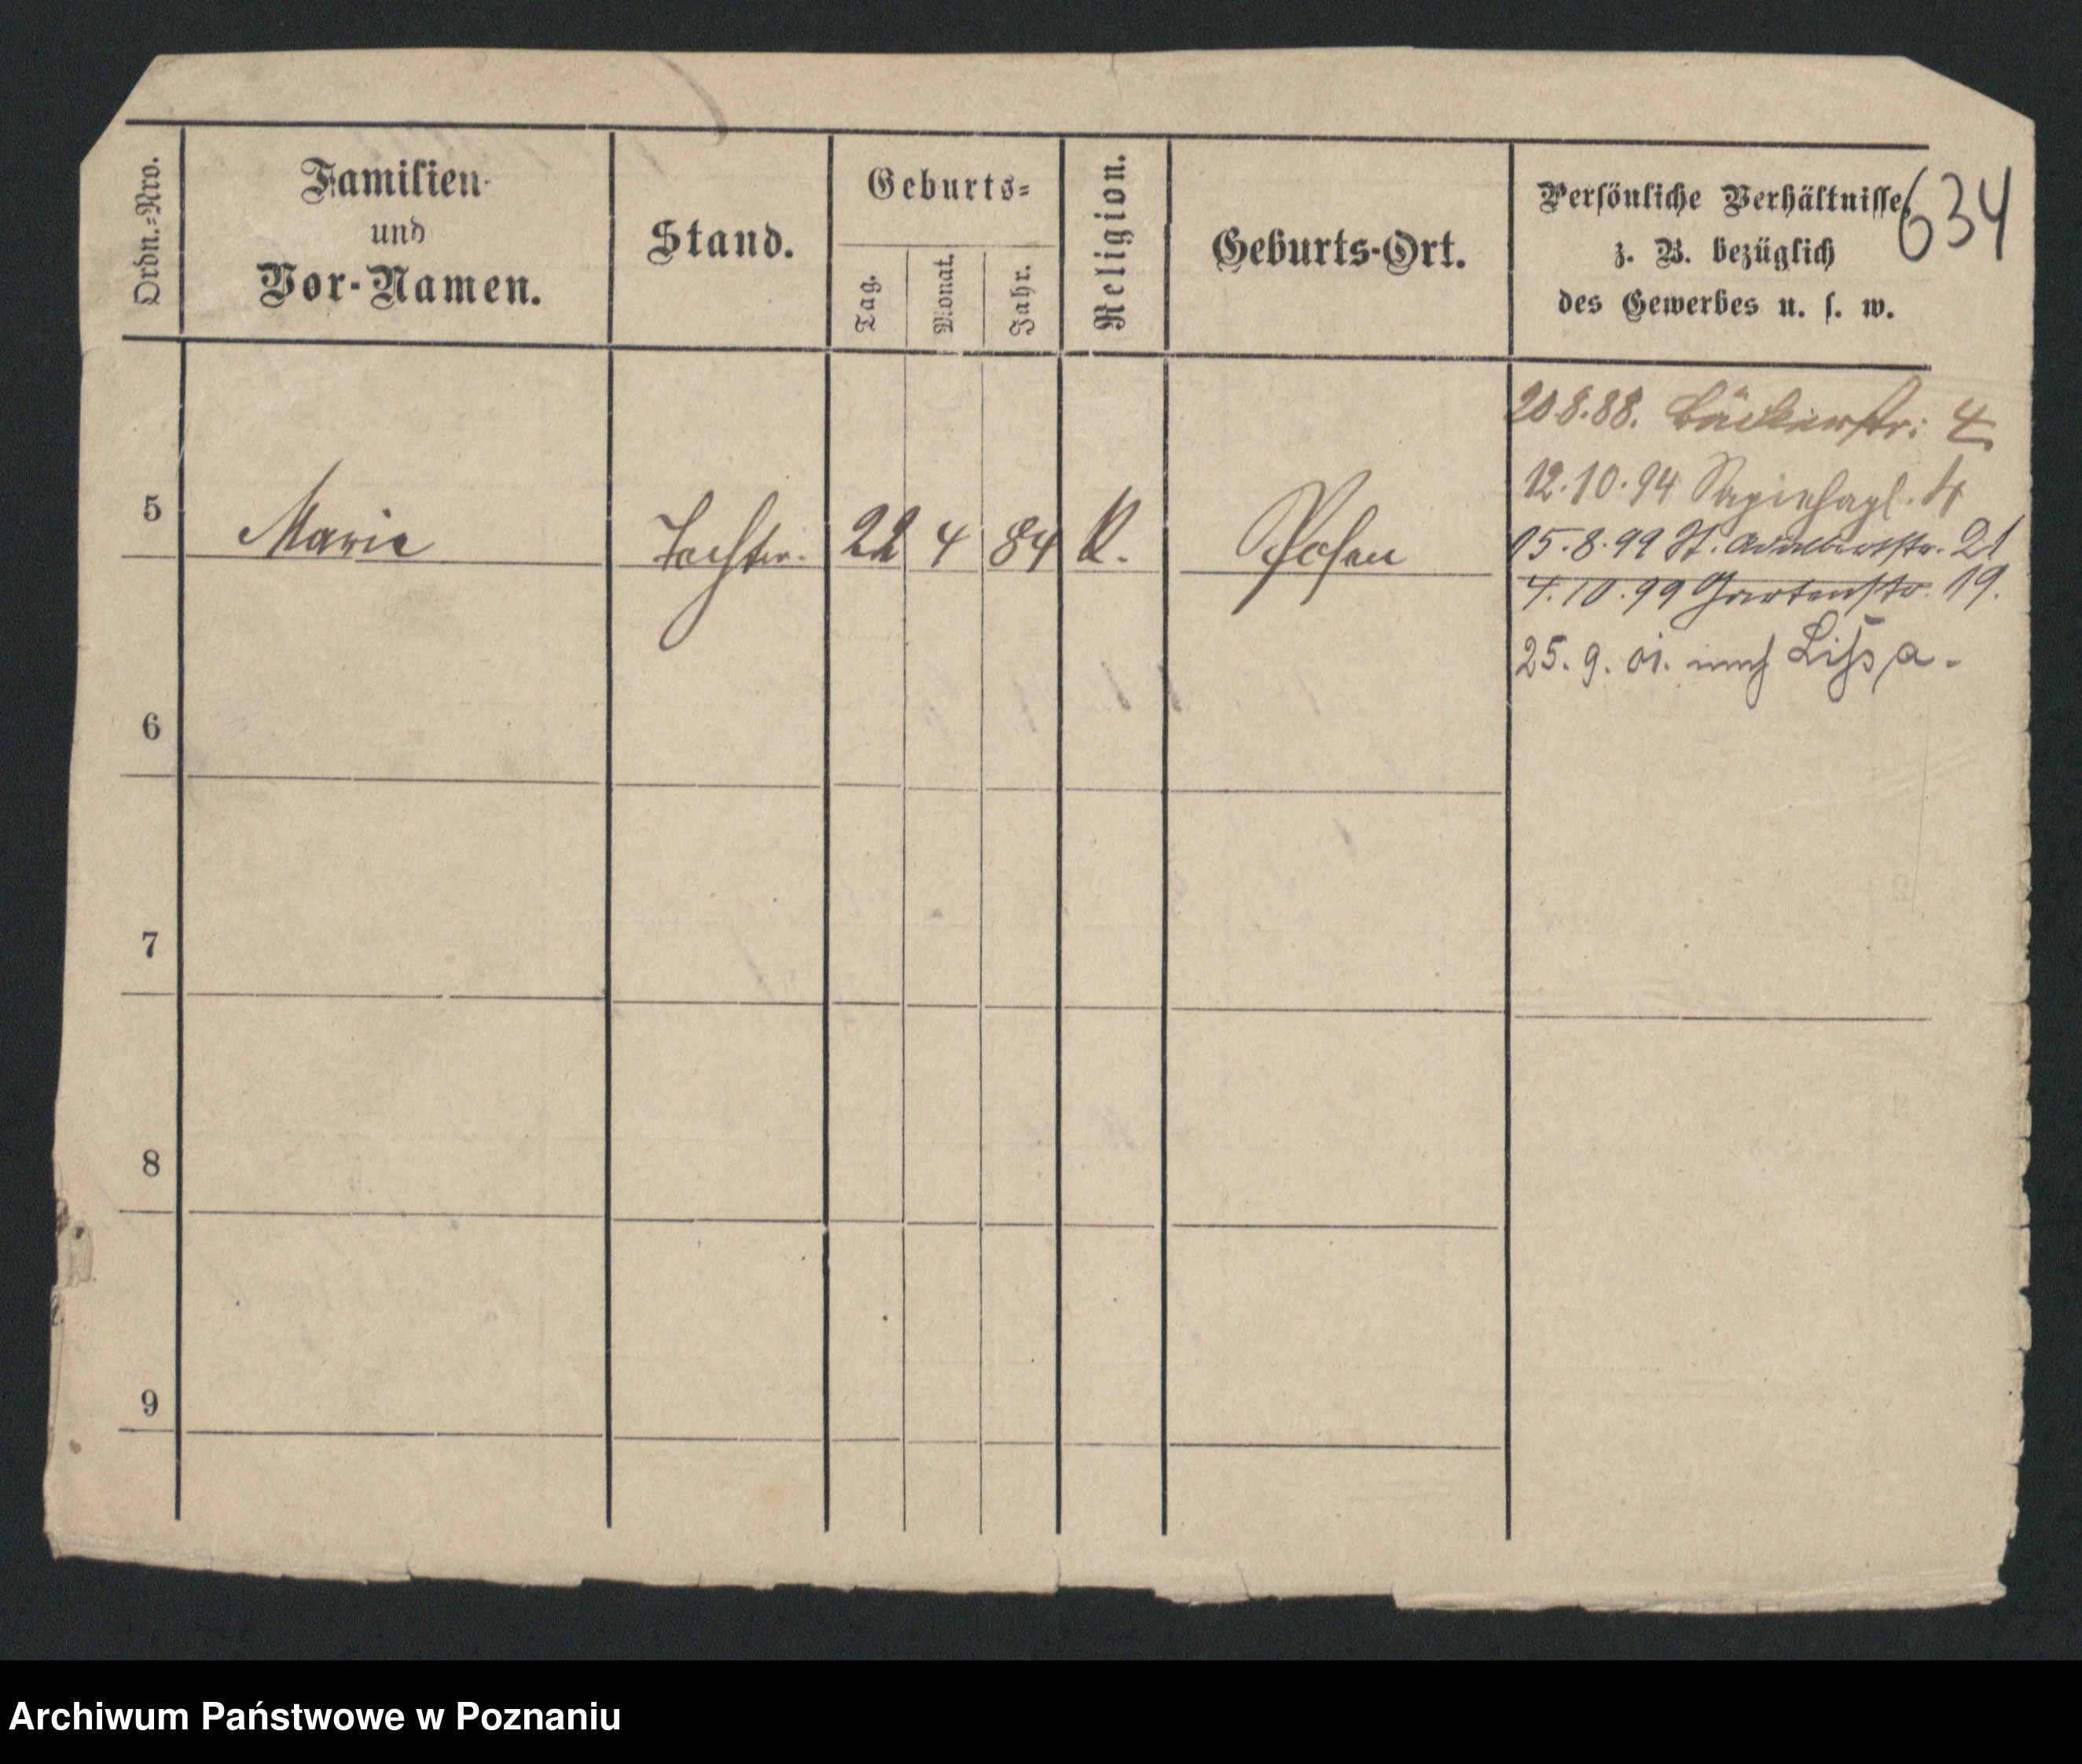 Ordn.-Nro.
Familien-
und
Vor-Namen.
Stand.
Geburts-
Tag.
Monat.
Jahr.
Religion.
Geburts-Ort.
Persönliche Verhältnisse,
z. B. bezüglich
des Gewerbes u. s. w.
634
5 Marie Tochter. 22 4 84 K. Posen
20.8.88. Bäckerstr: 4
12.10.94 Sapiehapl. 4
05.8.99 St. Adalbertstr. 21
4.10.99 Gartenstr. 19.
25.9.01. nach Lissa.
6
7
8
9
Archiwum Państwowe w Poznaniu